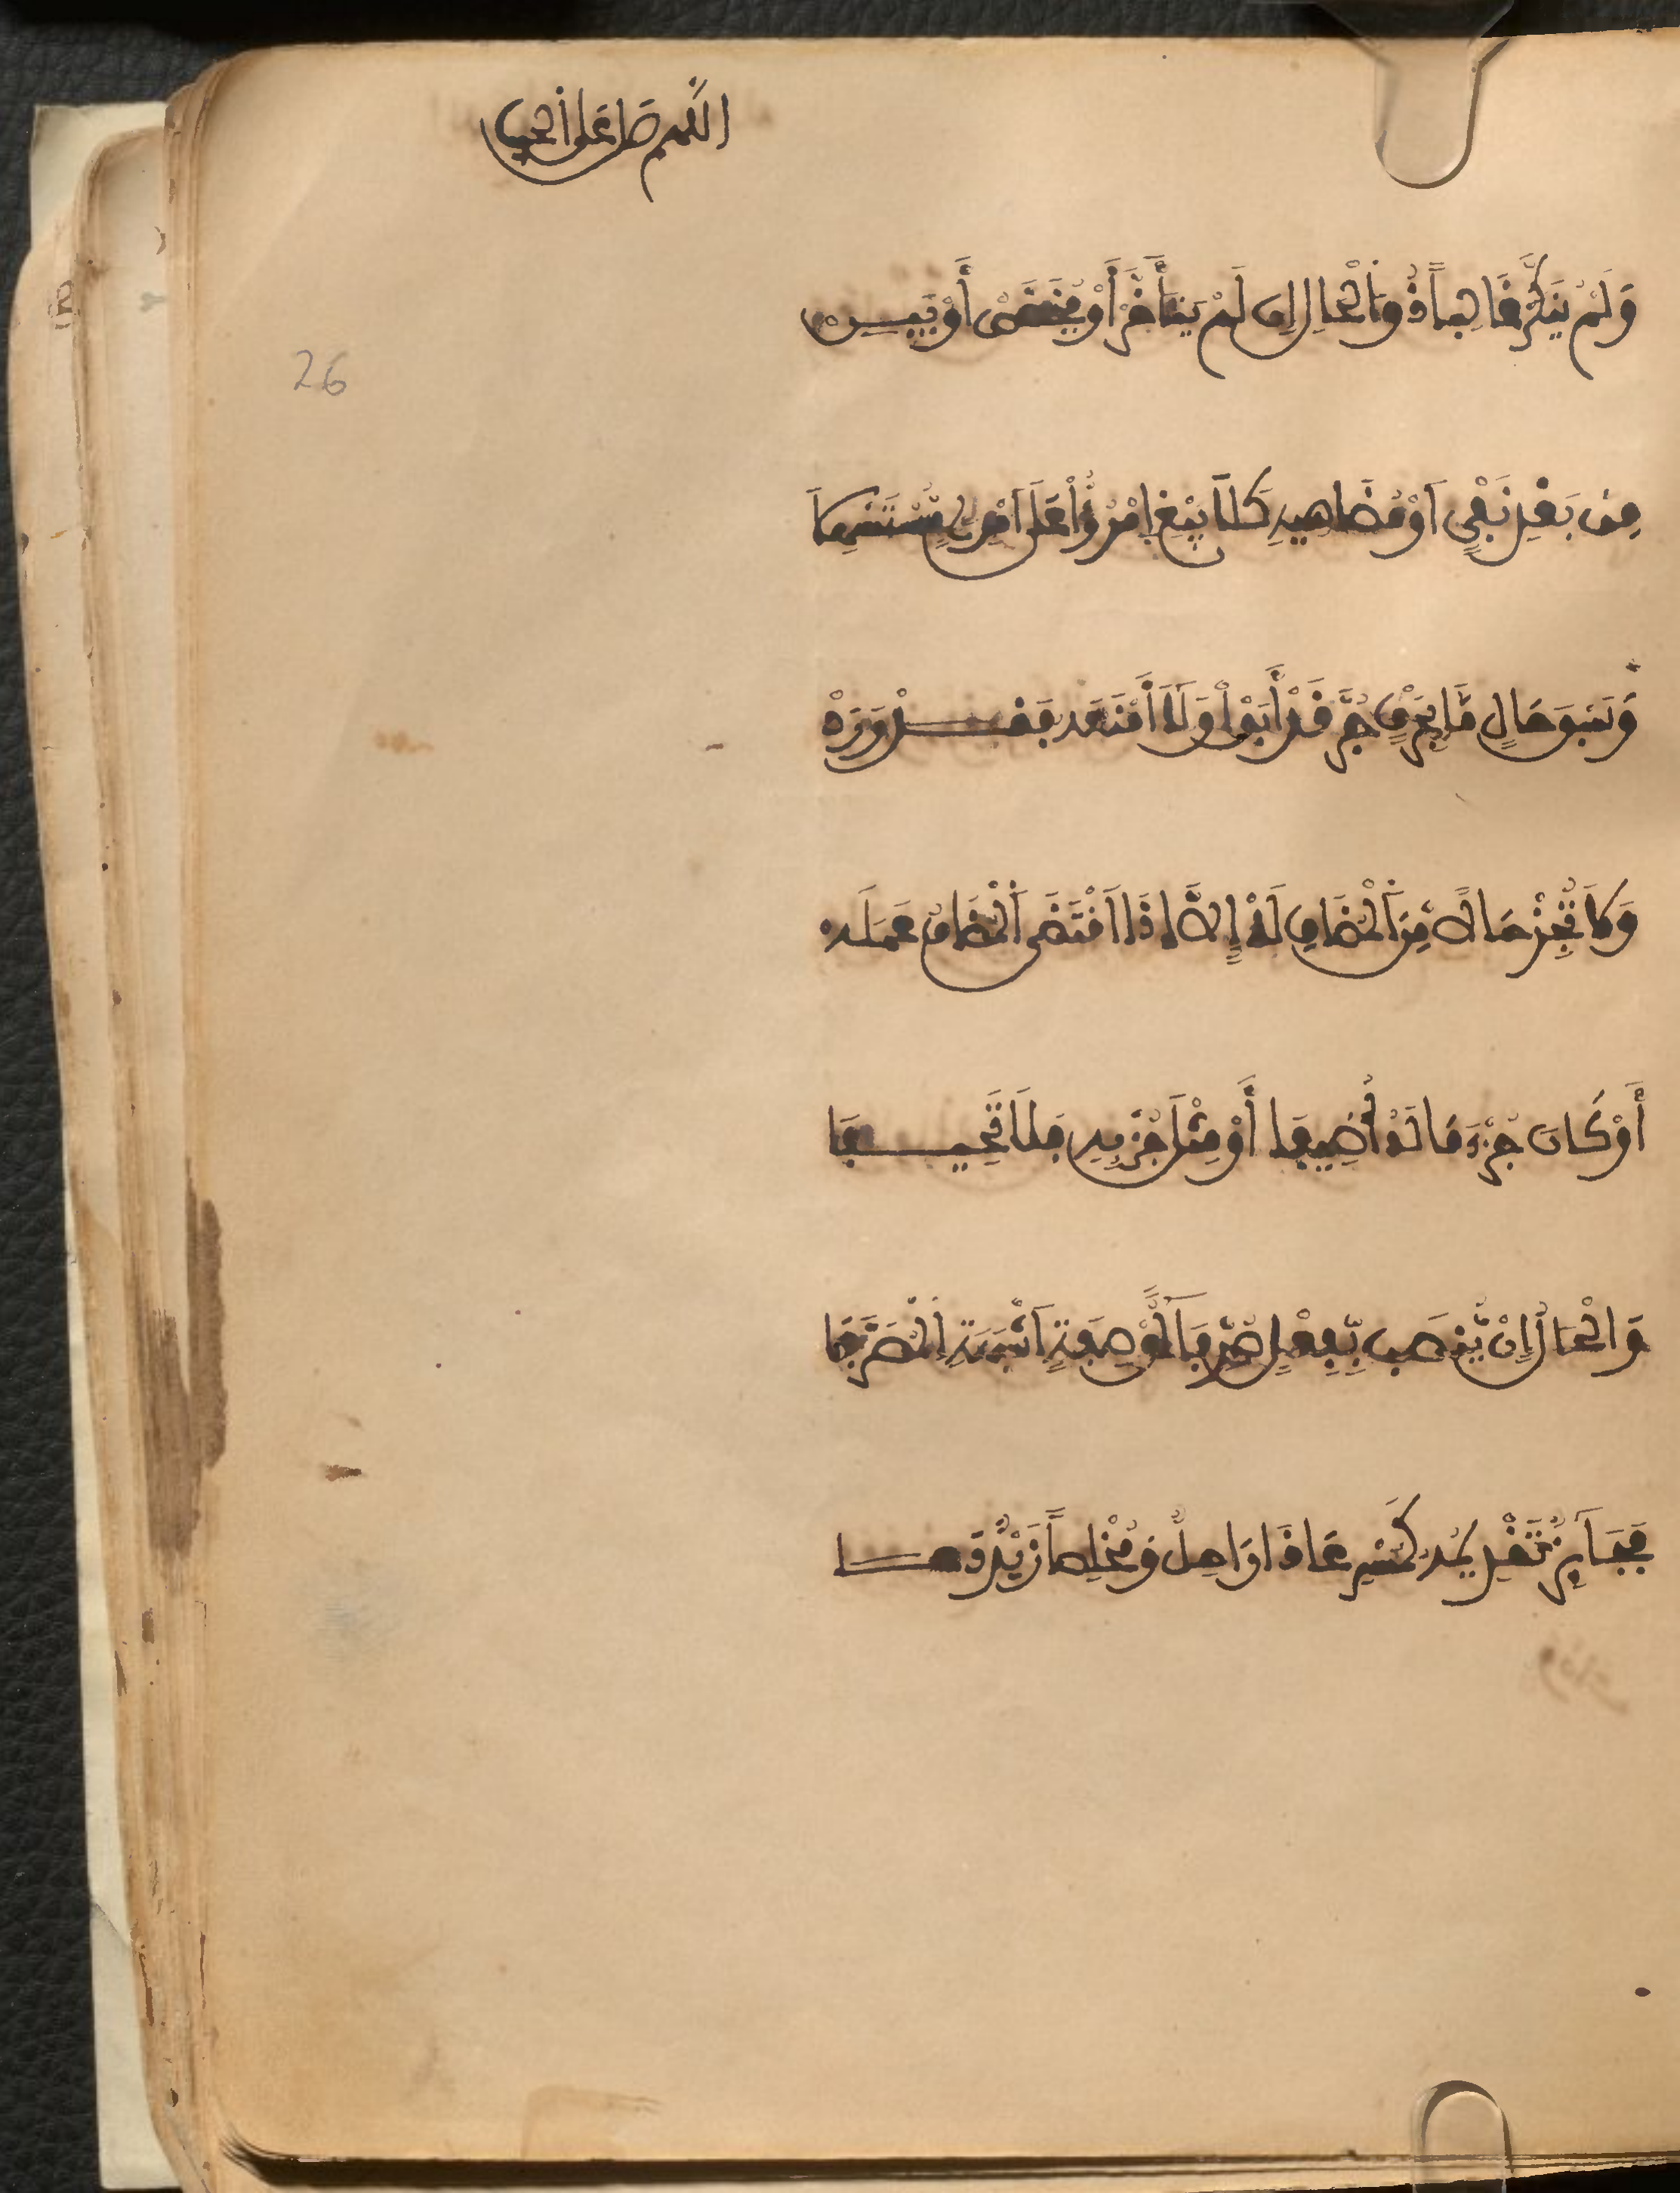 اللهم صل على الحبيب
وَلَمْ يُنَكَّرْ غَالِباً ذُو اَلْحَالِ إِن لَمْ يَتَأَخَّرْ أَوْ يُخَصَّصْ أَوْ يَبِـــنْ
26
مِن بَعْدِ نَفْيٍ اَوْ مُضَاهِيهِ كَلَا يَبْغِ اِمْرُؤٌا عَلَى اَمْرِئٍ مُّسْتَسْهِلَا
وَسَبْقَ حَالٍ مَّا بِحَرْفٍ جُرَّ قَدْ أَبَوْا وَلَا أَمْنَعُه فَقَـــدْ وَرَدْ
وَلَا تُجِزْ حَالاً مِّنَ اَلْمُضَافِ لَهْ إِلَّا إِذَا اَقْتَضَى اَلْمُضَافُ عَمَلَه
أَوْ كَانَ جُزْءَ مَا لَهُ أُضِيفَا أَوْ مِثْلَ جُزْئِهِ فَلَا تَحِيـــفَا
وَالْحَالُ إِنْ يُّنْصَب بِّفِعْلٍ صُرِّفَا أَوْ صِفَةٍ اَشْبَهَتِ اِلْمُصَرَّفَا
فَجَائِزٌ تَقْدِيمُه كَمُسْرِعَا ذَا رَاحِلٌ وَمُخْلِصاً زَيْدٌ دَعَـــا